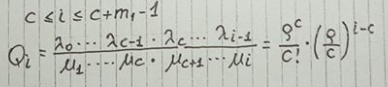 c ≤ i ≤ c+m₁-1
Qᵢ = (λ₀ ··· λ_{c-1} · λ_c ··· λ_{i-1}) / (μ₁ ···· μ_c · μ_{c+1} ··· μᵢ) = ρ^c / c! · (ρ/c)^{i-c}